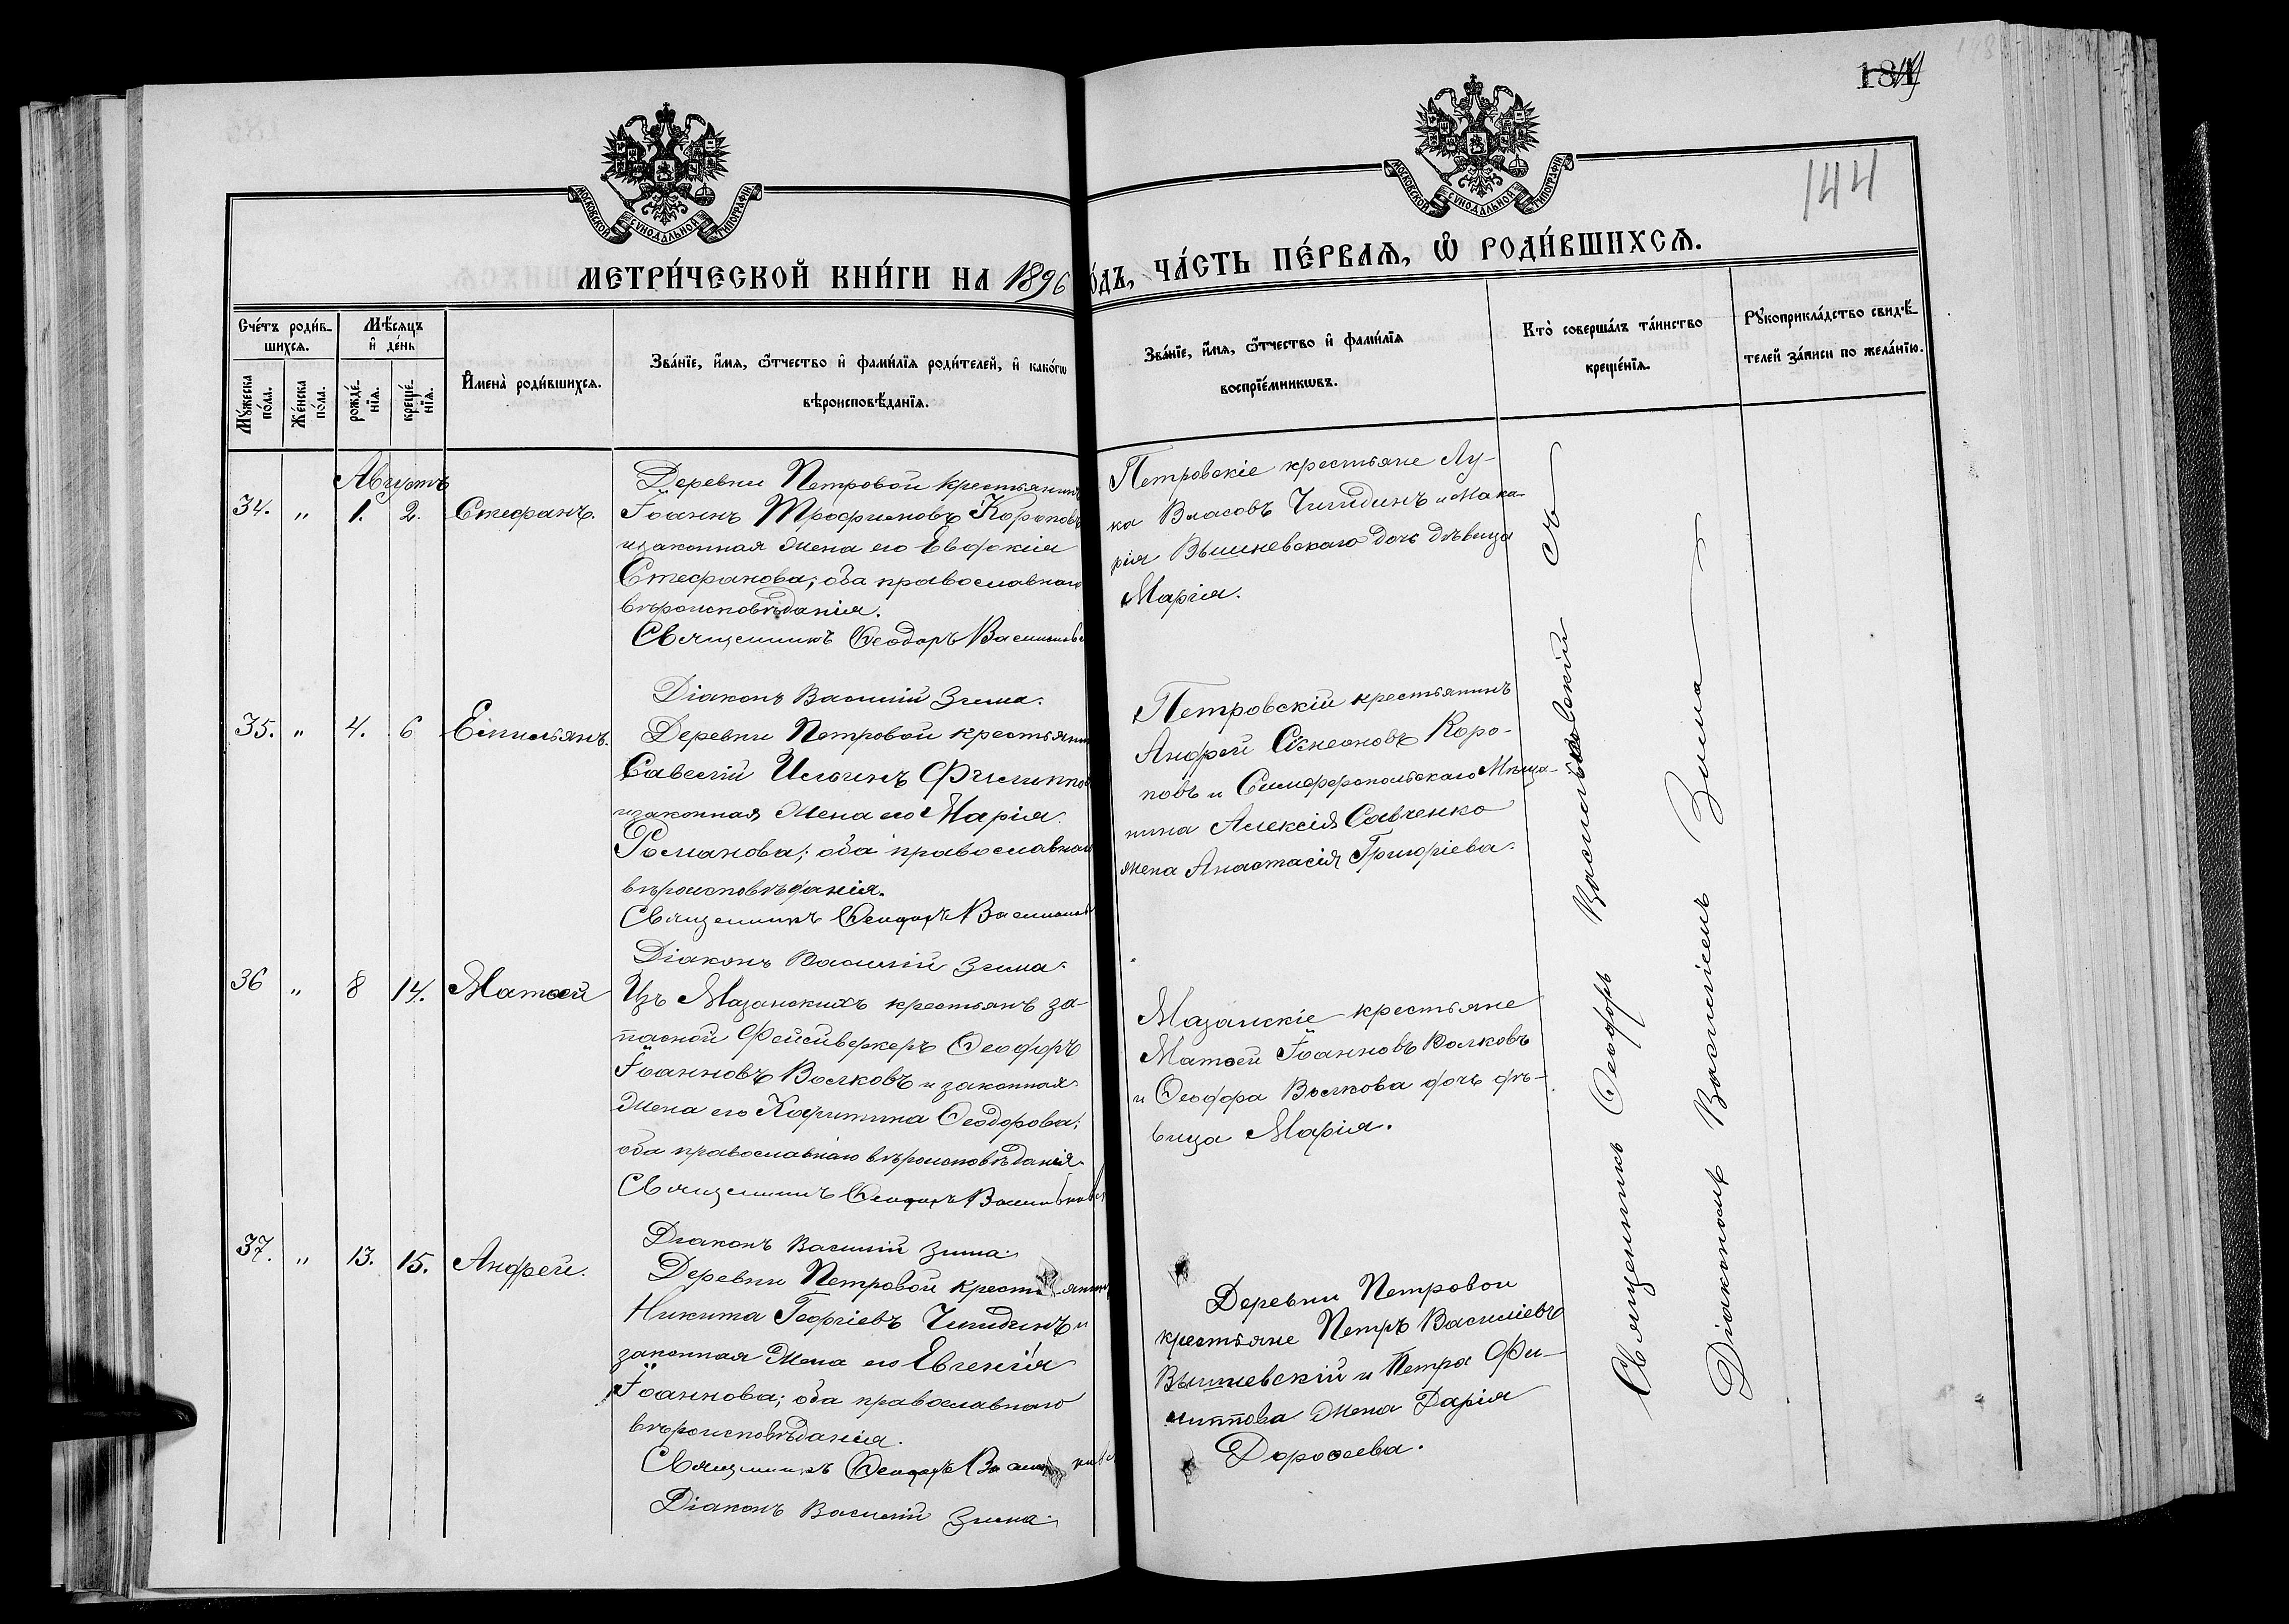 184
144
МОСКОВСКОЙ СѴНОДАЛЬНОЙ ТИПОГРАФІИ
МОСКОВСКОЙ СѴНОДАЛЬНОЙ ТИПОГРАФІИ
МЕТРИ́ЧЕСКОЙ КНИ́ГИ НА 1896
О́ДЪ, ЧА́СТЬ ПЕ́РВАѦ, Ѡ҆ РОДИ́ВШИХСѦ.
Сче́тъ роди́в-
шихсѧ.
Мѣ́сѧцъ
и҆ де́нь
Мꙋ́жеска
по́ла.
Же́нска
по́ла.
рожде́-
нїѧ.
креще́-
нїѧ.
И҆мена̀ роди́вшихсѧ.
Зва́нїе, и҆́мѧ, ѻ҆́тчество и҆ фами́лїѧ роди́телей, и҆ како́гѡ
вѣроисповѣ́данїѧ.
Зва́нїе, и҆́мѧ, ѻ҆́тчество и҆ фами́лїѧ
воспрїе́мникѡвъ.
Кто̀ соверша́лъ та́инство
креще́нїѧ.
Рꙋкоприкла́дство свидѣ́-
телей за́писи по жела́нїю.
Августъ
34. " 1. 2. Стефанъ.
Деревни Петровой крестьянинъ
Іоаннъ Трофимовъ Короповъ
и законная жена его Евдокія
Стефанова; оба православнаго
вѣроисповѣданія.
Священникъ Ѳеодоръ Васильковс
Діаконъ Василій Зима.
Петровскіе крестьяне Лу-
ка Власовъ Чигидинъ и Мака-
рія Вышневскаго дочь дѣвица
Марія.
35. " 4. 6 Емильянъ.
Деревни Петровой крестьянин
Савелій Ильинъ Филиппов
и законная жена его Марія
Романова; оба православнаго
вѣроисповѣданія.
Священникъ Ѳеодоръ Васильков
Діаконъ Василій Зима.
Петровскій крестьянинъ
Андрей Симеоновъ Коро-
повъ и Симферопольскаго Мѣща-
нина Алексія Савченко
жена Анастасія Григоріева.
36 " 8 14. Матѳей
Изъ Мазанскихъ крестьянъ за-
пасной Фейерверкеръ Ѳеодоръ
Іоанновъ Волковъ и законная
жена его Харитина Ѳеодорова;
оба православнаго вѣроисповѣданія
Священникъ Ѳеодоръ Васильковс
Діаконъ Василій Зима.
Мазанскіе крестьяне
Матѳей Іоанновъ Волковъ
и Ѳеодора Волкова дочь дѣ-
вица Марія.
37. " 13. 15. Андрей.
Деревни Петровой крестьянин
Никита Георгіевъ Чигидинъ и
законная жена его Евгенія
Іоаннова; оба православнаго
вѣроисповѣданія.
Священникъ Ѳеодоръ Васильковс
Діаконъ Василій Зима.
Деревни Петровой
крестьяне Петръ Василіевъ
Вышневскій и Петра Фи-
липпова жена Дарія
Дороѳеева.
Священникъ Ѳеодоръ Васильковскій съ
Діакономъ Василіемъ Зима